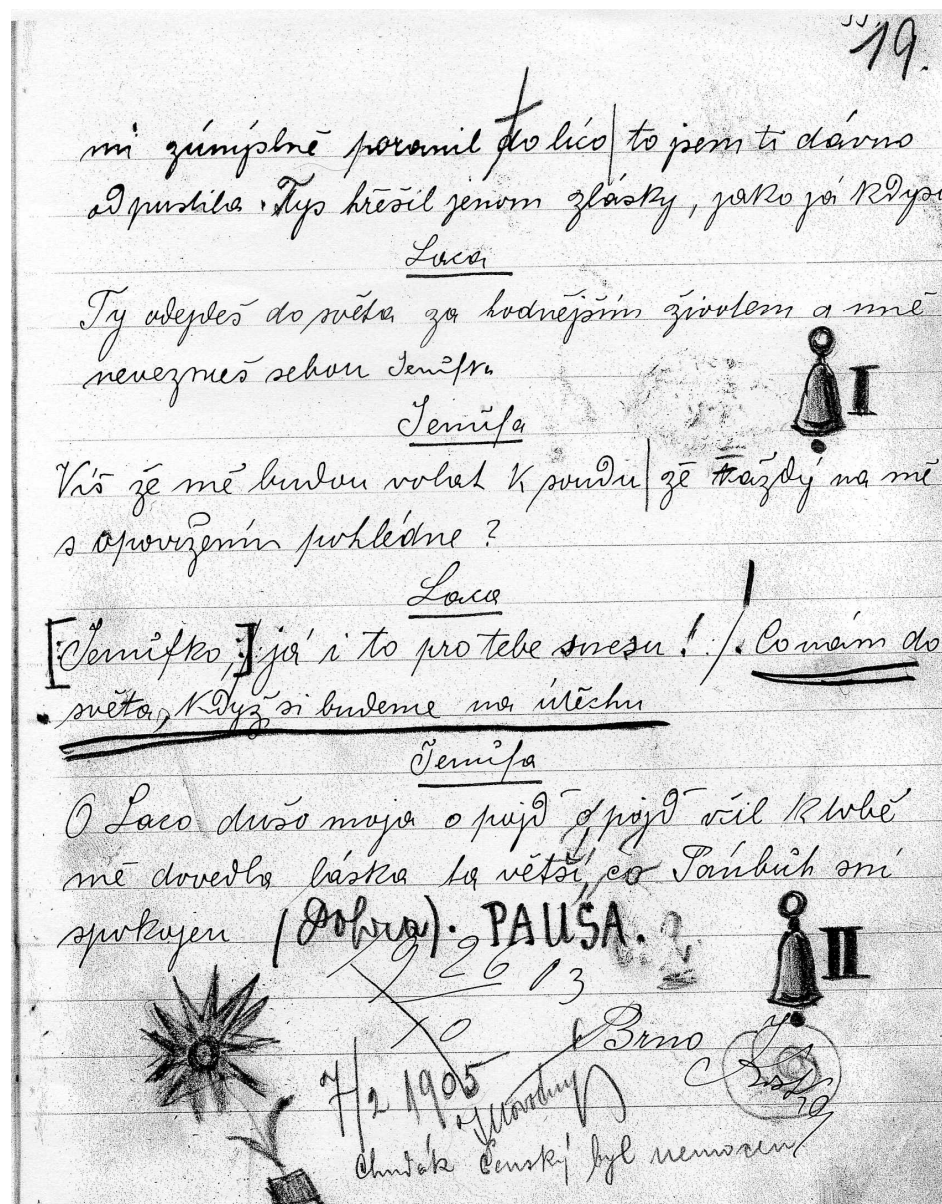 19.
mi zúmýslně poranil do líco | to jsem ti dávno
odpustila. Tys hřešil jenom zlásky, jako já kdysi
Laca
Ty odejdeš do světa za hodnějším životem a mně
nevezmeš sebou Jenůfka
I
Jenůfa
Víš že mě budou volat k soudu | že každý na mě
s opovržením pohlédne ?
Laca
[Jenůfko,] já i to pro tebe snesu ! /. Co nám do
světa, když si budeme na útěchu
Jenůfa
O Laco dušo moja o pojď o pojď včil k tobě
mě dovedla láska ta větší, co Pánbůh sní
spokojen (Dobra). PAUSA.
II
9 26 03
10
Brno
7/2 1905
Novotný
Chudák Čenský byl nemocen